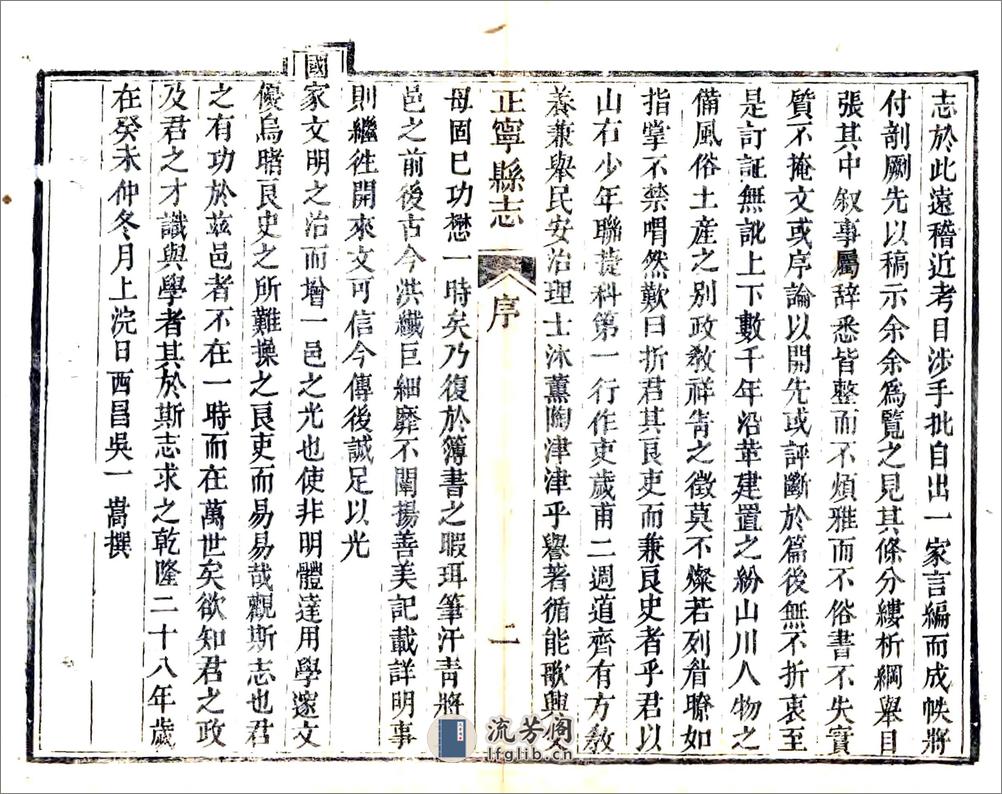 志於此遠稽近考目涉手批自出一家言編而成帙將
付剞劂先以稿示余余爲覽之見其條分縷析綱舉目
張其中叙事屬辞悉皆整而不煩雅而不俗書不失實
質不掩文或序論以開先或評斷於篇後無不折衷至
是訂証無訛上下數千年沿革建置之紛山川人物之
備風俗土産之别政敎祥眚之徵莫不燦若列眉瞭如
指掌不禁喟然歎曰折君其良吏而兼良史者乎君以
山右少年聯捷科第一行作吏歲甫二週道齊有方敎
養兼舉民安治理士沐薰陶津津乎譽著循能歌興父
正寧縣志
序
二
母固已功懋一時矣乃復於簿書之暇珥筆汗青將
邑之前後古今洪纖巨細靡不闡揚善美記載詳明事
則繼徃開來文可信今傳後誠足以光
國家文明之治而增一邑之光也使非明體達用學邃文
優烏睹良史之所難操之良吏而易易哉觀斯志也君
之有功於茲邑者不在一時而在萬世矣欲知君之政
及君之才識與學者其於斯志求之乾隆二十八年歲
在癸未仲冬月上浣日西昌吳一嵩撰
流芳阁
lfglib.cn